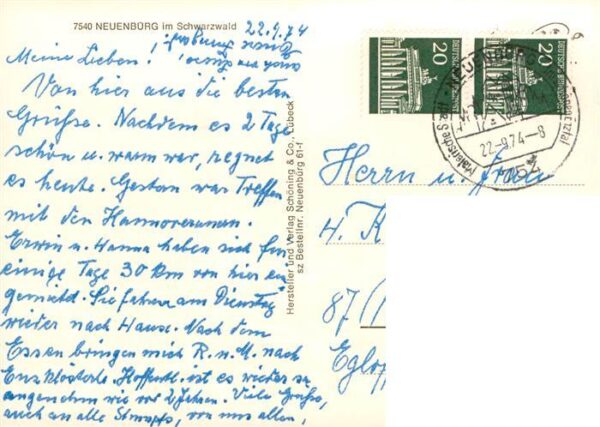 7540 NEUENBÜRG im Schwarzwald
22.9.74
Meine Lieben!
Von hier aus die besten
Grüße. Nachdem es 2 Tage
schön u. warm war, regnet
es heute. Gestern war Treffen
mit den Hannoveranern.
Erwin u. Hanna haben sich für
einige Tage 30 km von hier ein
gemietet. Sie fahren am Dienstag
wieder nach Hause. Nach dem
Essen bringen mich R. u. M. nach
Enzklösterle. Hoffentl. ist es wieder so
angenehm wie vor 2 Jahren. Viele Grüße,
auch an alle, von uns allen,
Hersteller und Verlag Schöning & Co., Lübeck
sz Bestellnr. Neuenbürg 61-f
20
DEUTSCHE BUNDESPOST
20
DEUTSCHE BUNDESPOST
NEUENBÜRG
22.-9.74-8
Malerische
Herrn u. Frau
H. K
87/1
Eglof